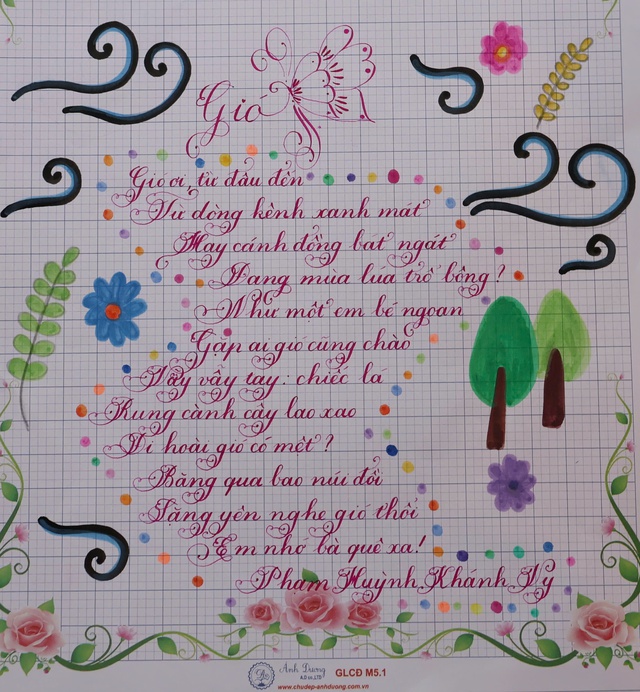 Gió
Gió ơi, từ đâu đến
Từ dòng kênh xanh mát
Hay cánh đồng bát ngát
Đang mùa lúa trổ bông?
Như một em bé ngoan
Gặp ai gió cũng chào
Vẫy vẫy tay: chiếc lá
Rung cành cây lao xao
Đi hoài gió có mệt?
Băng qua bao núi đồi
Lặng yên nghe gió thổi
Em nhớ bà quê xa!
Phạm Huỳnh Khánh Vy
Ánh Dương
A.D co.,LTD
GLCĐ M5.1
www.chudep-anhduong.com.vn